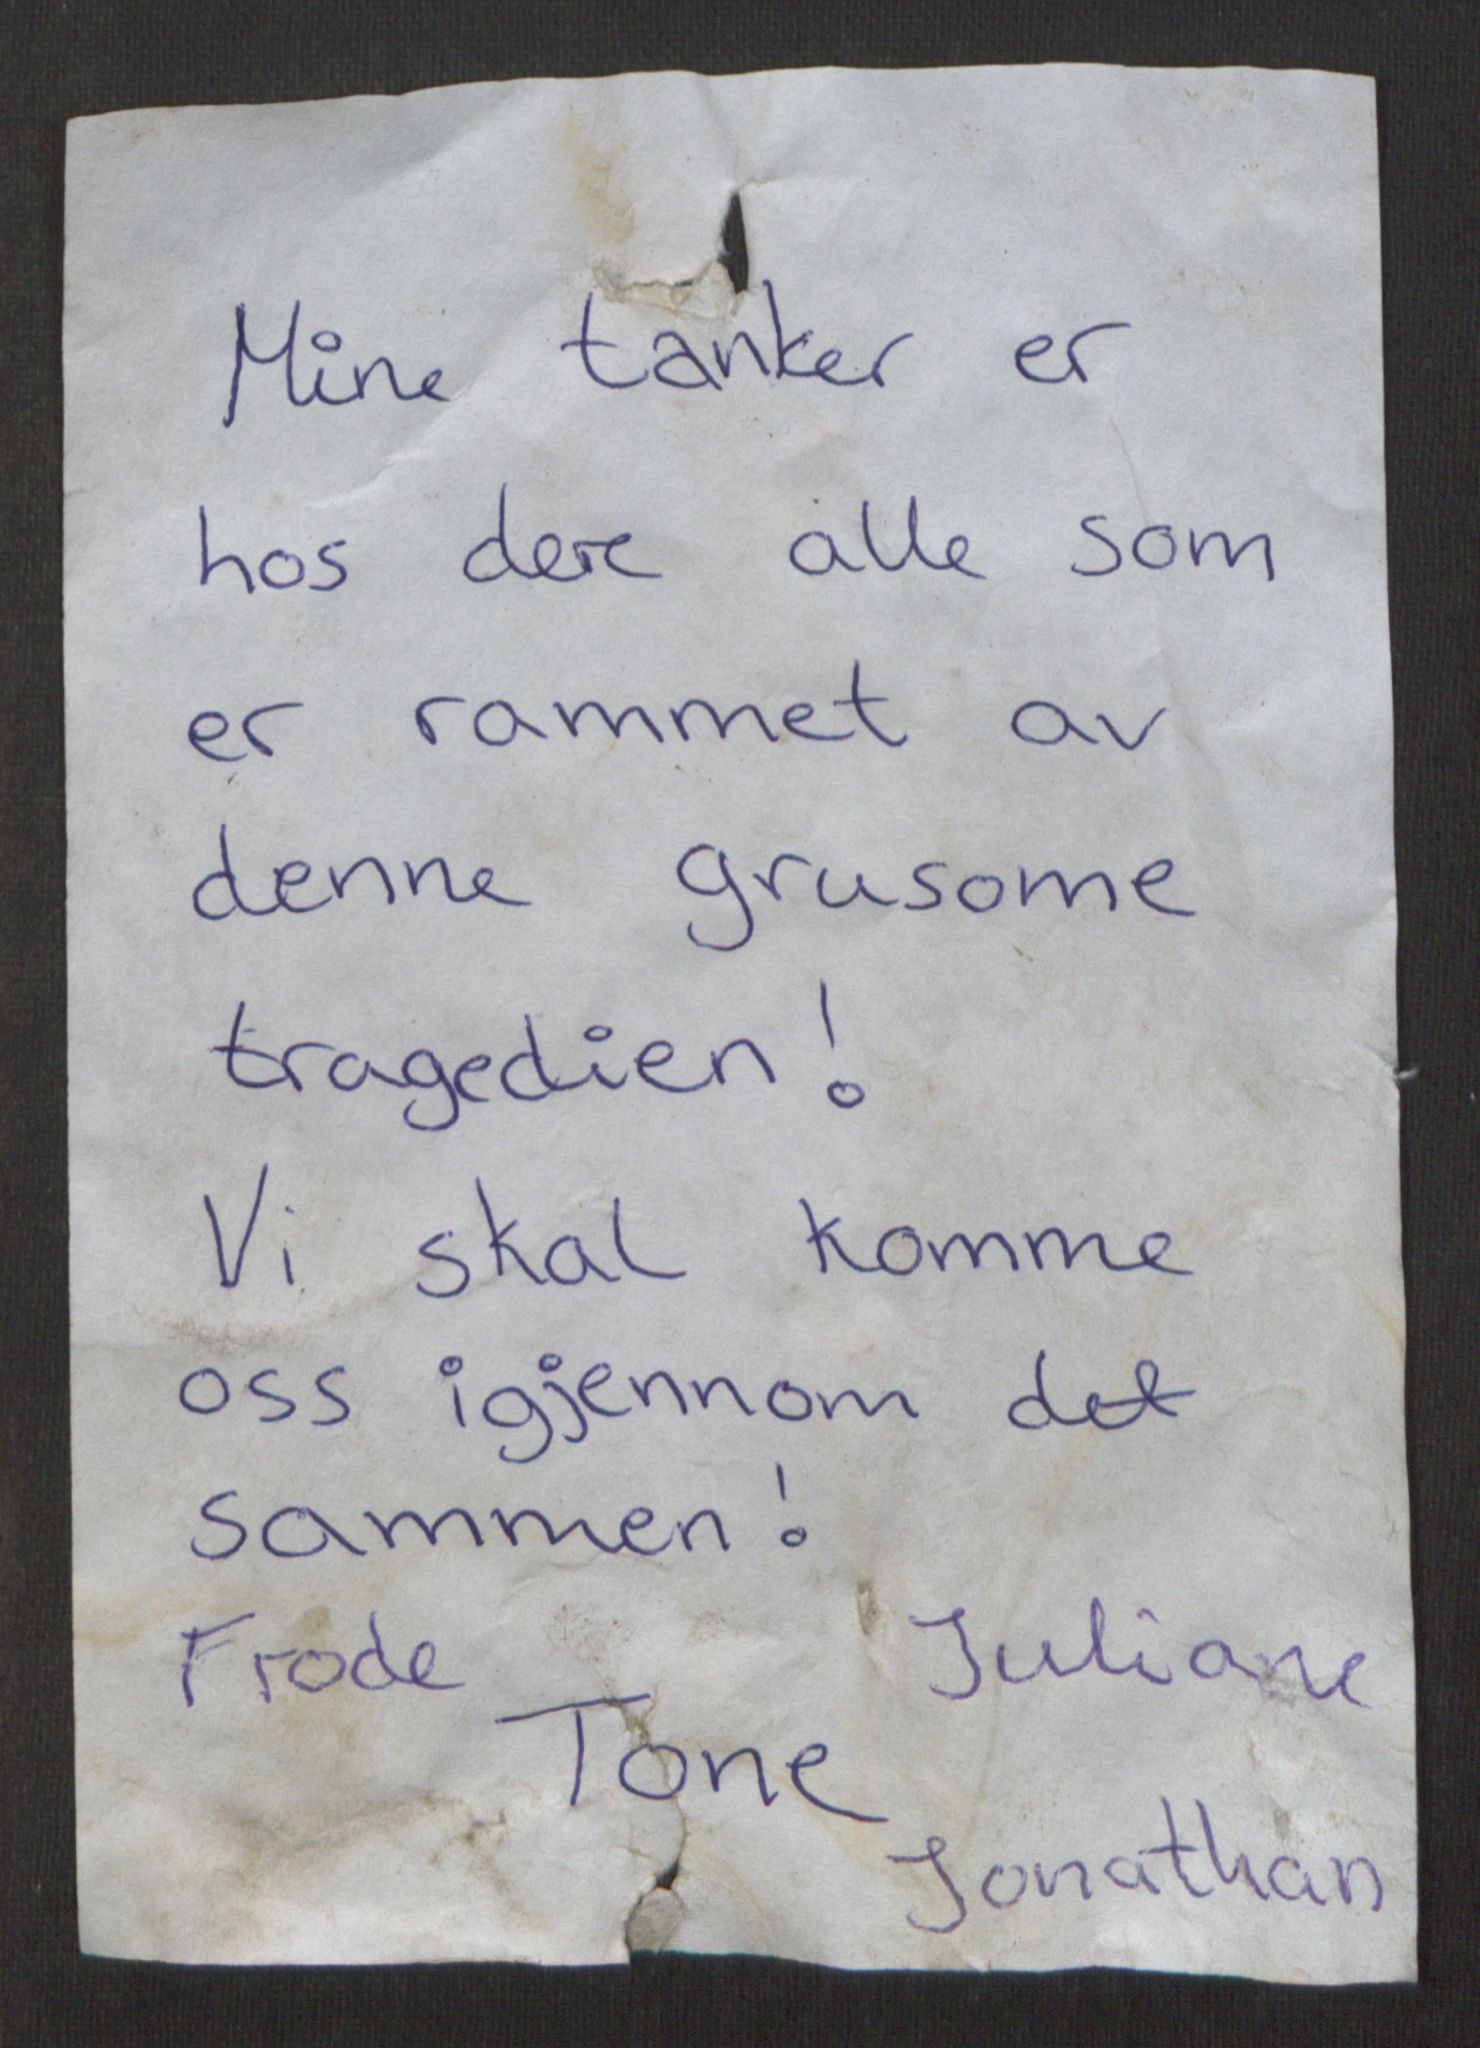 Mine tanker er
hos dere alle som
er rammet av
denne grusome
tragedien!
Vi skal komme
oss igjennom det
sammen!
Frode Juliane
Tone
Jonathan